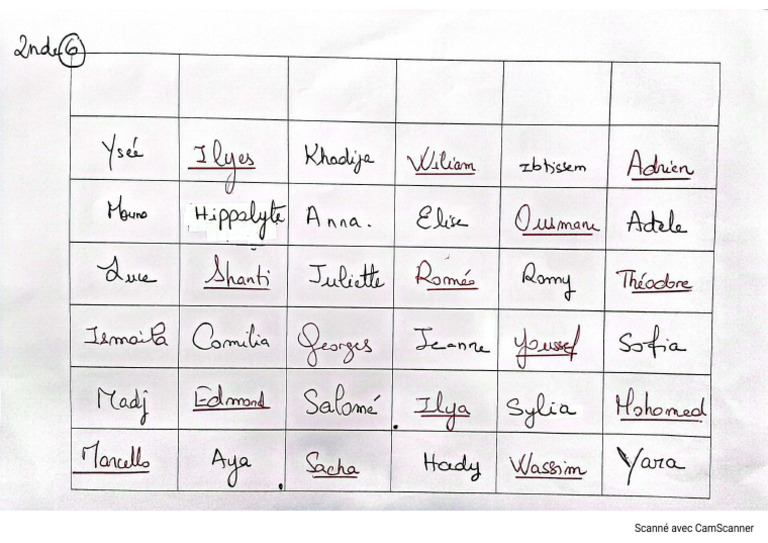 2nde 6
Ysée Ilyes Khadija Wiliam Ibtissem Adrien
Hippolyte Anna. Elise Ousmane Adele
Luce Shanti Juliette Roméo Romy Théodore
Ismaila Comilia Georges Jeanne Youssef Sofia
Madj Edmond Salomé Ilya Sylia Mohomed
Marcello Aya Sacha Hady Wassim Yara
Scanné avec CamScanner